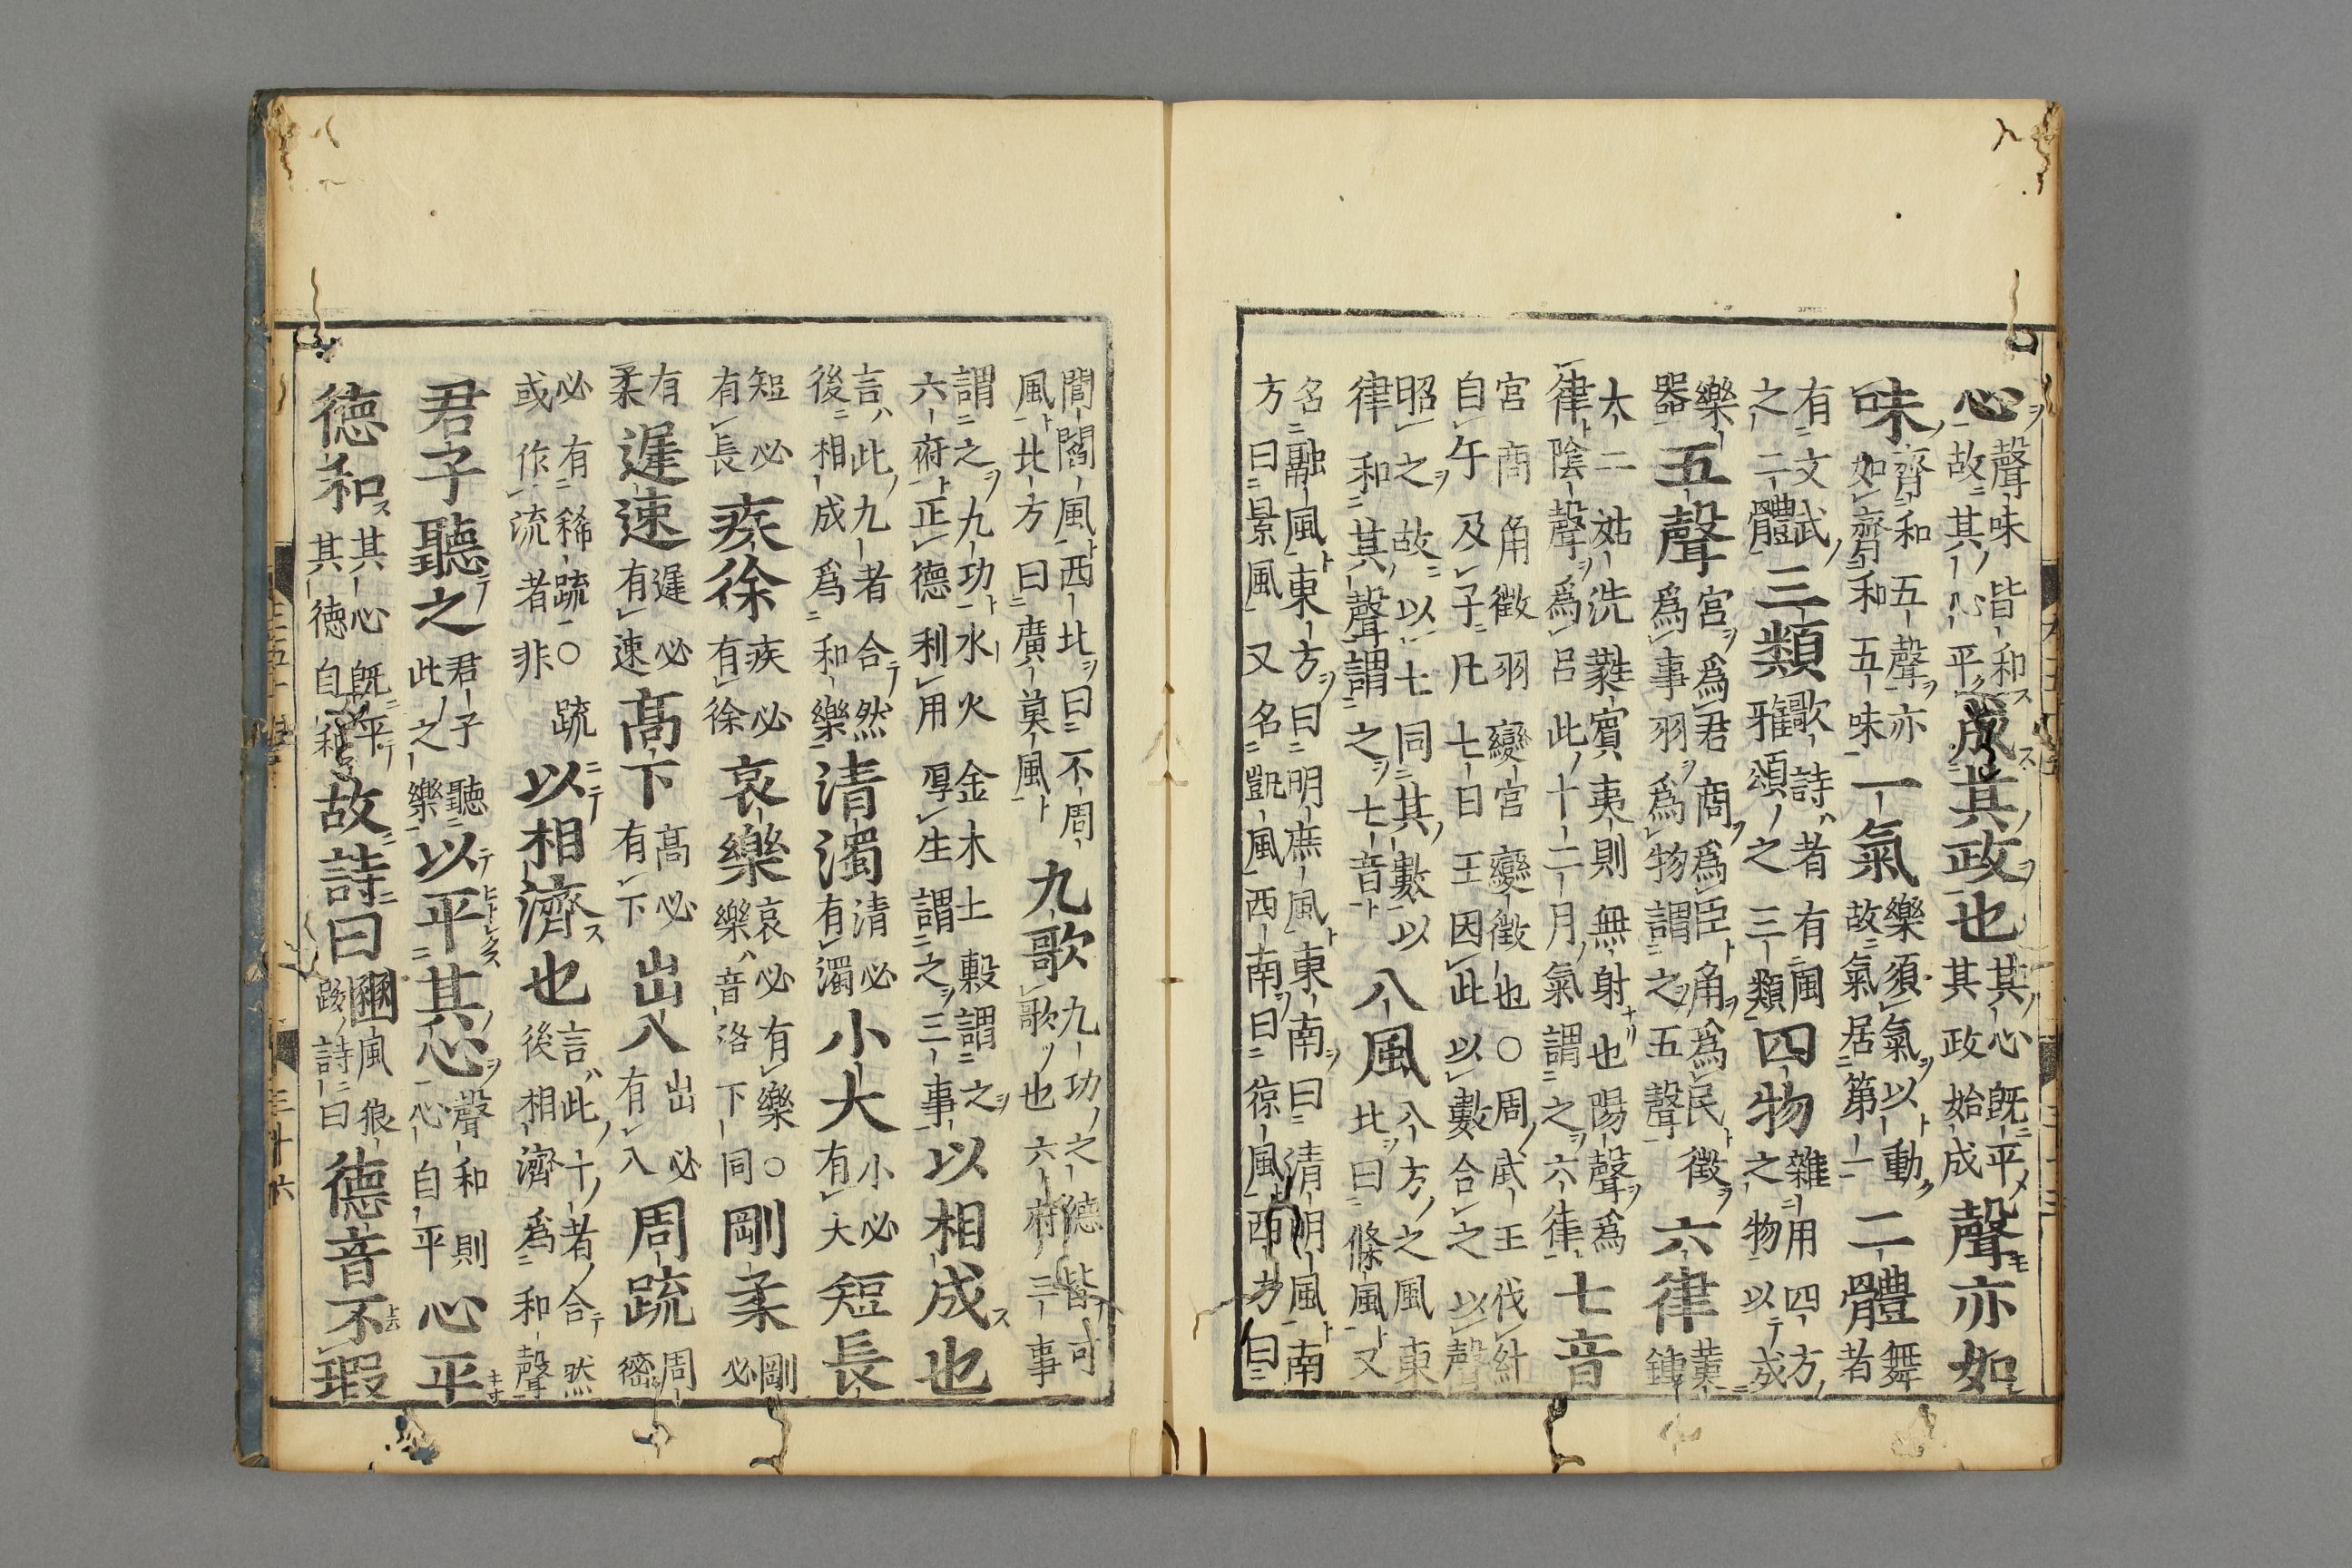 心聲味皆和
故其心平成其政也其心既平
其政始成聲亦如
味齊和五聲亦
如齊和五味一氣樂須氣以動
故氣居第一二體舞
者
有文武
之二體三類歌詩者有風
雅頌之三類四物雜用四方
之物以成
樂
器五聲宮爲君商爲臣角爲民徵
爲事羽爲物謂之五聲六律黃
鍾
太姑洗蕤賓夷則無射也陽聲爲
律陰聲爲呂此十二月氣謂之六律七音
宮商角徵羽變宮變徵也○周武王伐紂
自午及子凡七日王因此以數合之以聲
昭之故以七同其數以
律和其聲謂之七音八風八方之風東
北曰條風又
名融風東方曰明庶風東南曰清明風南
方曰景風又名凱風西南曰涼風西方曰
閶闔風西北曰不周
風北方曰廣莫風九歌九功之德皆可
歌也六府三事
謂之九功水火金木土穀謂之
六府正德利用厚生謂之三事以相成也
言此九者合然
後相成爲和樂清濁清必
有濁小大小必
有大短長
短必
有長疾徐疾必
有徐哀樂哀必有樂○
樂音洛下同剛柔剛
必
有
柔遲速遲必
有速高下高必
有下出入出必
有入周疏周
密
必有稀疏○疏
或作流者非以相濟也言此十者合然
後相濟爲和聲
君子聽之君子聽
此之樂以平其心聲和則
心自平心平
德和其心既平
其德自和故詩曰豳風狼
跋詩曰德音不瑕